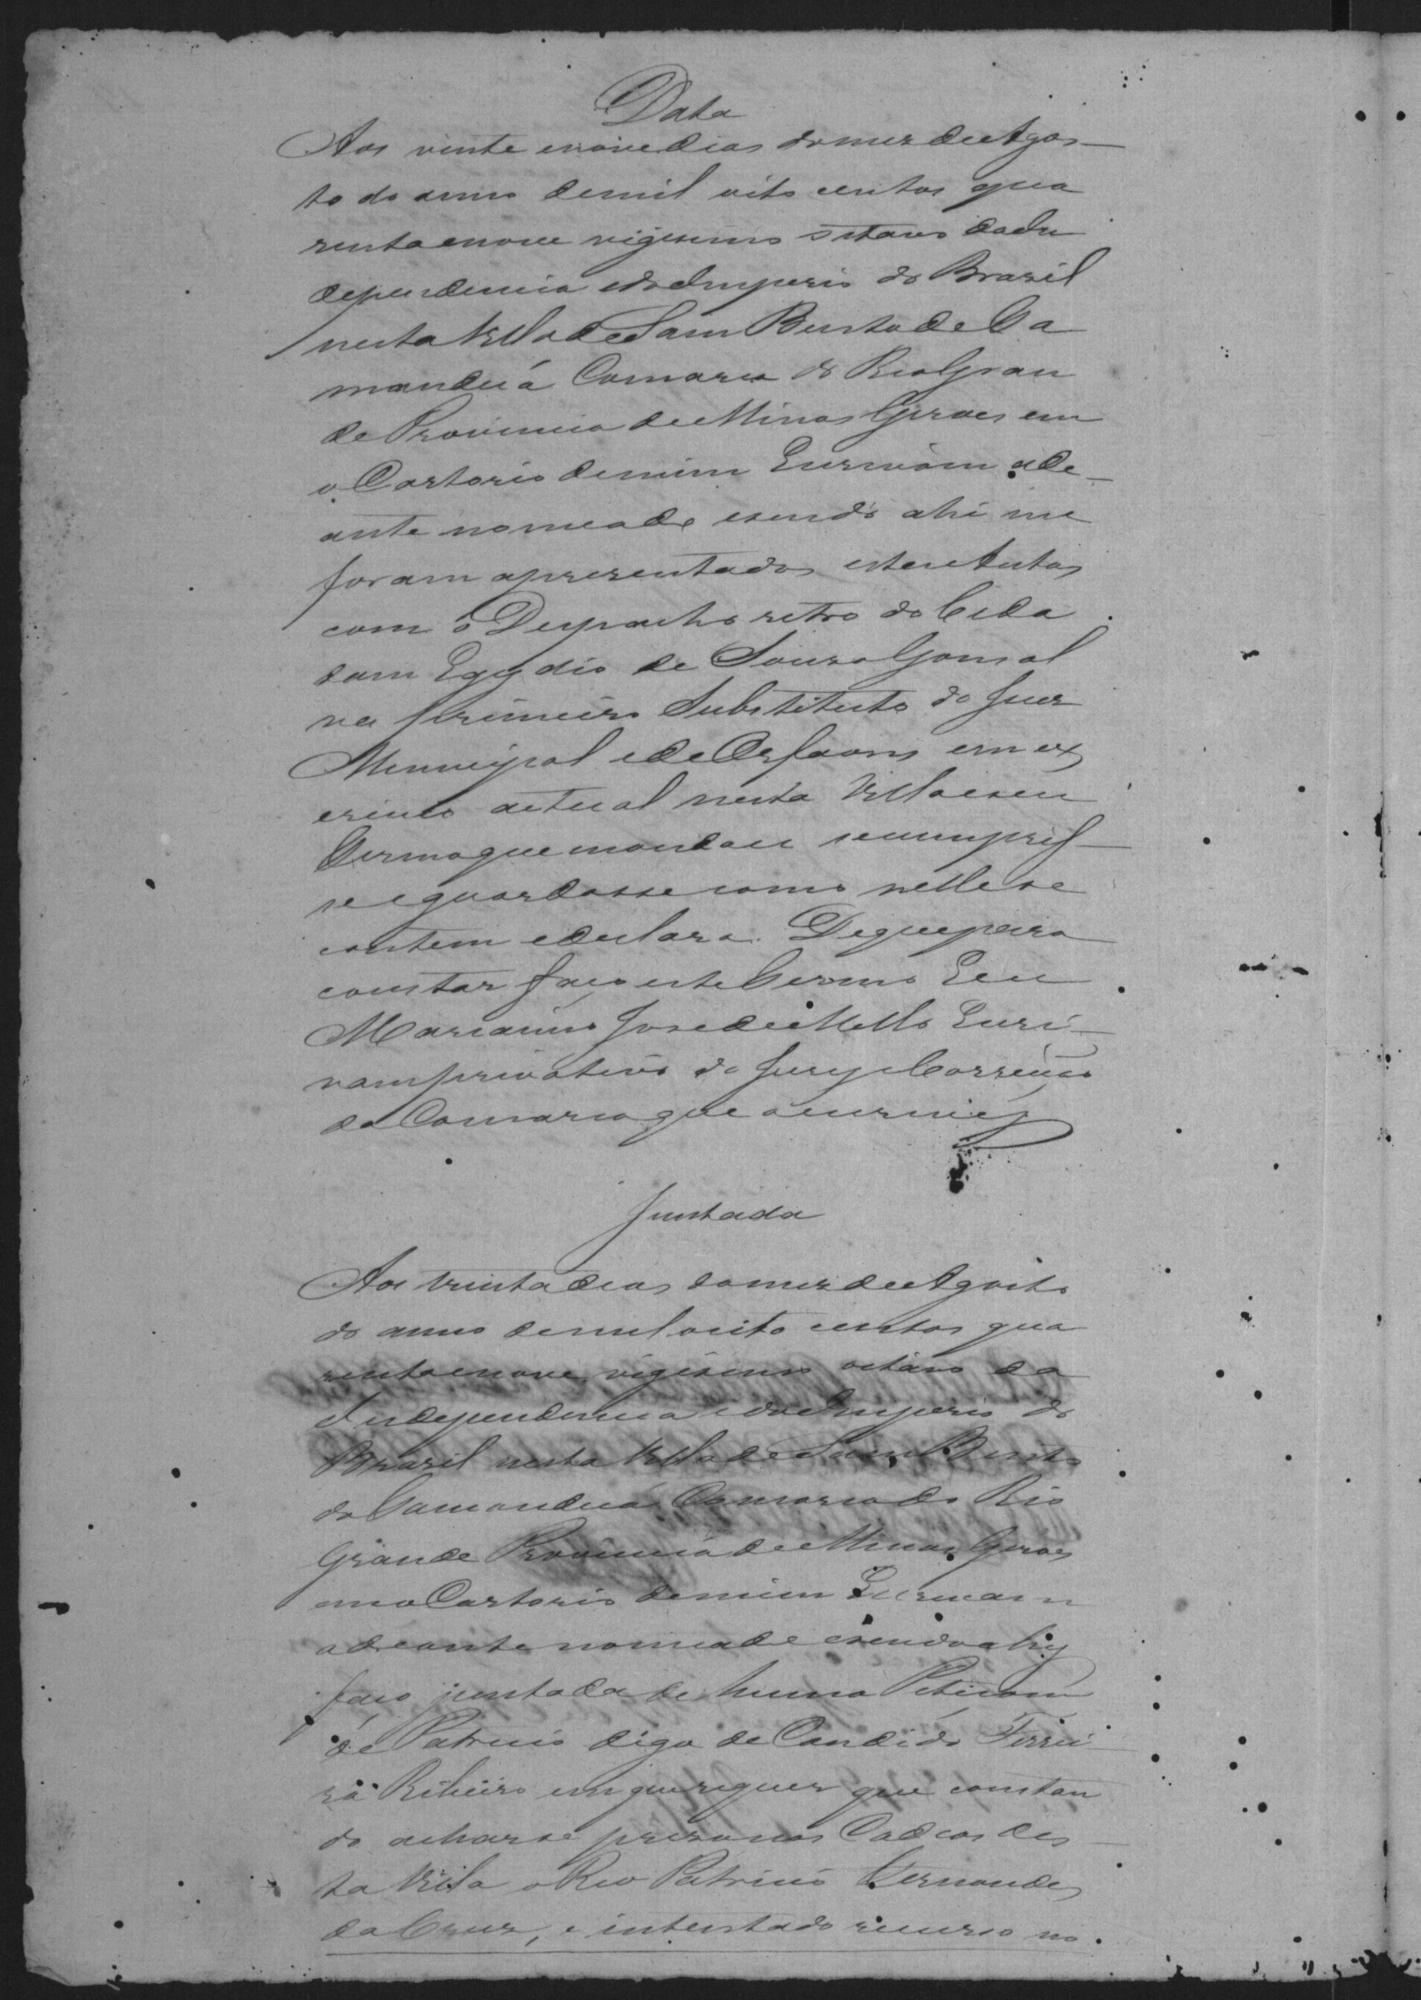 Data
Aos vinte enove dias do mez de Agos-
to do anno de mil oito centos qua
renta enove vigesimo oitavo da In
dependencia e do Imperio do Brazil
nesta Villa de Sam Bento do Ta
manduá Comarca do Rio Gran
de Provincia de Minas Geraes em
o Cartorio de mim Escrivam ade-
ante nomeado esendo ahi me
foram apresentados estes Autos
com o Despacho retro do Cida
dam Egydio de Souza Gonsal
ves primeiro Substituto do Juiz
Municipal e de Orfaons em ex
ercicio actual nesta Villa e seu
Termo que mandou se cumpris-
se e guardasse como nelle se
contem e declara. De que para
constar faço este Termo Eu
Marianno Jose de Mello Escri-
vam privativo do Jury e Correição
da Comarca que o escrevi
Juntada
Aos trinta dias do mez de Agosto
do anno de mil oito centos qua
renta enove vigesimo oitavo da
Independencia e do Imperio do
Brazil nesta Villa de Sam Bento
do Tamanduá Comarca do Rio
Grande Provincia de Minas Geraes
em o Cartorio de mim Escrivam
adeante nomeado esendo ahy
faço juntada de huma Peticam
de Patricio digo de Candido Ferrei-
ra Ribeiro em que requer que constan
do achar-se prezo nas Cadeas des-
ta Villa o Reo Patricio Fernandes
da Cruz, e intentado recurso no